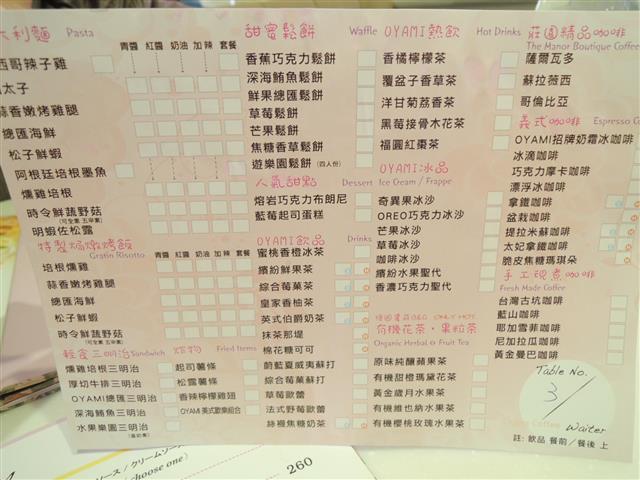 大利麵 Pasta
青醬 紅醬 奶油 加辣 套餐
西哥辣子雞
太子
蒜香嫩烤雞腿
總匯海鮮
松子鮮蝦
阿根廷培根墨魚
燻雞培根
時令鮮蔬野菇
(可全素 五辛素)
明蝦佐松露
特製焗燉烤飯
Gratin Risotto
青醬 紅醬 奶油 加辣 套餐
培根燻雞
蒜香嫩烤雞腿
總匯海鮮
松子鮮蝦
時令鮮蔬野菇
(可全素 五辛素)
輕食三明治 Sandwich
燻雞培根三明治
厚切牛排三明治
OYAMI總匯三明治
深海鮪魚三明治
水果樂園三明治
炸物 Fried Items
起司薯條
松露薯條
香辣檸檬雞翅
OYAMI 美式歡樂組合
甜蜜鬆餅 Waffle
香蕉巧克力鬆餅
深海鮪魚鬆餅
鮮果總匯鬆餅
草莓鬆餅
芒果鬆餅
焦糖香草鬆餅
遊樂園鬆餅 (四人份)
人氣甜點 Dessert
熔岩巧克力布朗尼
藍莓起司蛋糕
OYAMI飲品 Drinks
蜜桃香橙冰茶
繽紛鮮果茶
綜合莓菓茶
皇家香柚茶
英式伯爵奶茶
抹茶那堤
棉花糖可可
蔚藍夏威夷蘇打
綜合莓菓蘇打
草莓歐蕾
法式野莓歐蕾
絲襪焦糖奶茶
OYAMI熱飲 Hot Drinks
香橘檸檬茶
覆盆子香草茶
洋甘菊荔香茶
黑莓接骨木花茶
福圓紅棗茶
OYAMI冰品
Ice Cream / Frappe
奇異果冰沙
OREO巧克力冰沙
芒果冰沙
草莓冰沙
咖啡冰沙
繽紛水果聖代
香濃巧克力聖代
ONLY HOT
有機花茶·果粒茶
Organic Herbal & Fruit Tea
原味純釀蘋果茶
有機甜橙瑪黛花茶
黃金歲月水果茶
有機維也納水果茶
有機櫻桃玫瑰水果茶
莊園精品咖啡
The Manor Boutique Coffee
薩爾瓦多
蘇拉薇西
哥倫比亞
義式咖啡 Espresso Co
OYAMI招牌奶霜冰咖啡
冰滴咖啡
巧克力摩卡咖啡
漂浮冰咖啡
拿鐵咖啡
盆栽咖啡
提拉米蘇咖啡
太妃拿鐵咖啡
脆皮焦糖瑪琪朵
手工現煮咖啡
Fresh Made Coffee
台灣古坑咖啡
藍山咖啡
耶加雪菲咖啡
尼加拉瓜咖啡
黃金曼巴咖啡
Table No.
3
Waiter
註: 飲品 餐前 / 餐後 上
ソース / クリームソース
choose one)
260